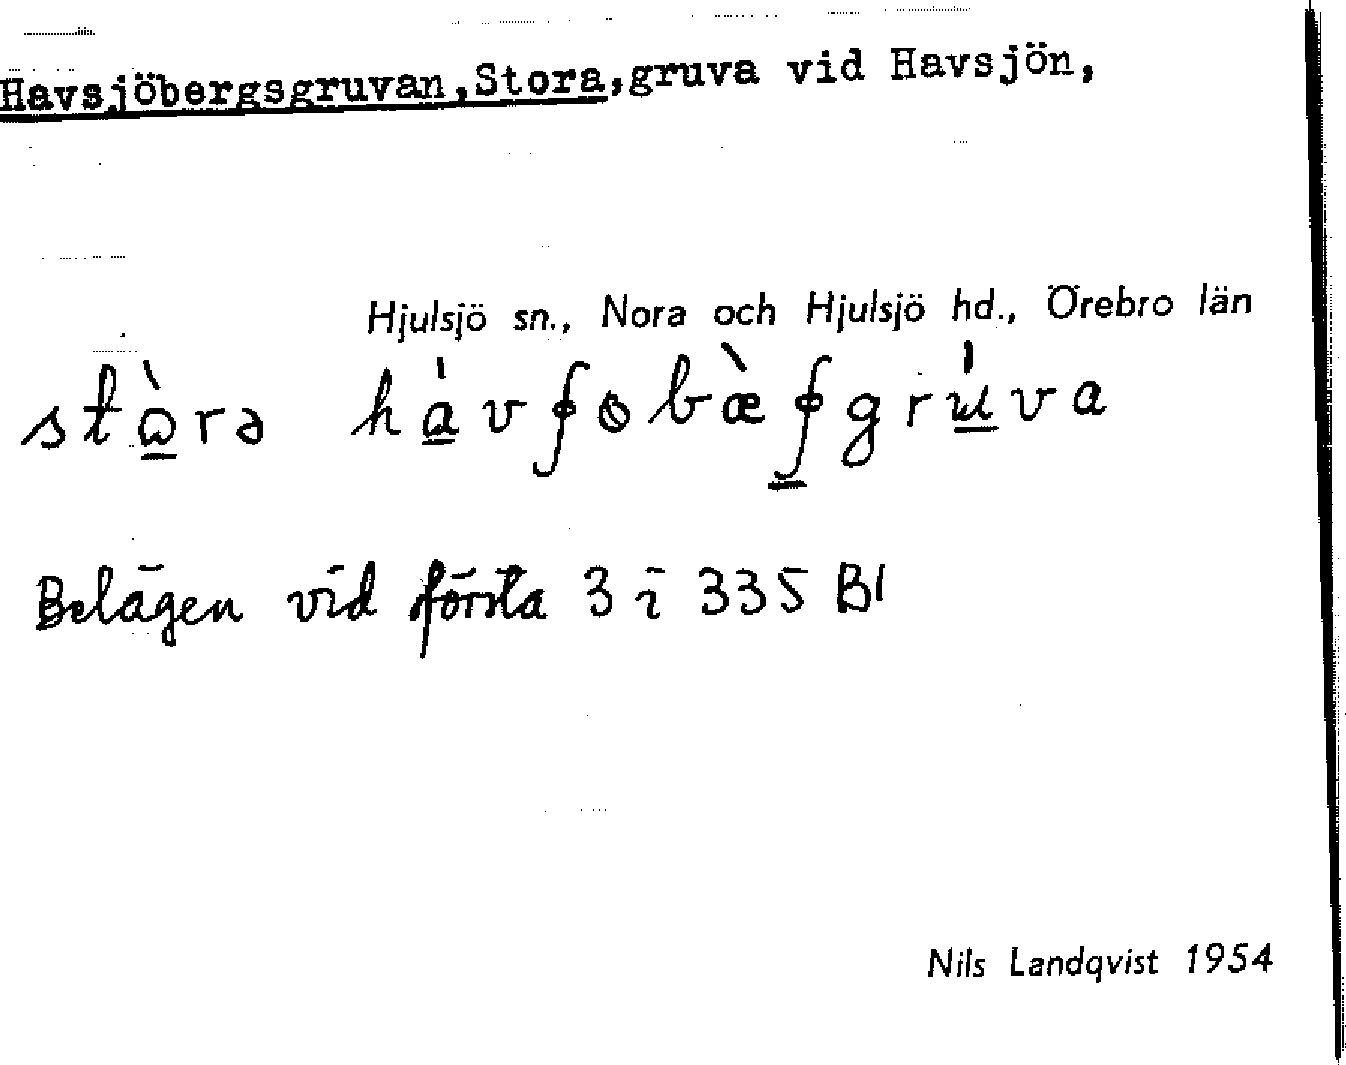 Havsjöbergsgruvan,Stora,gruva vid Havsjön,
Hjulsjö sn., Nora och Hjulsjö hd., Örebro län
Belägen vid första 3 i 335 Bl
Nils Landqvist 1954